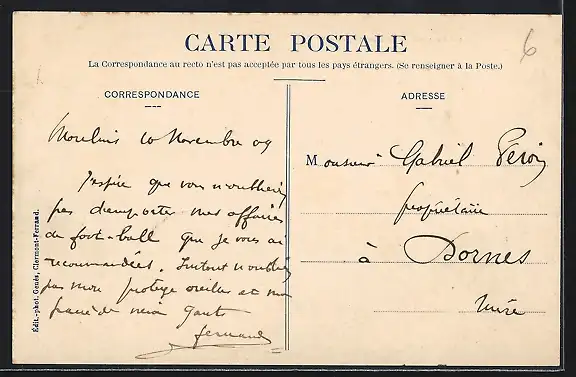 CARTE POSTALE
La Correspondance au recto n'est pas acceptée par tous les pays étrangers. (Se renseigner à la Poste.)
6
CORRESPONDANCE
ADRESSE
Moulins 10 Novembre 09
J'espère que vous n'oublierez
pas d'emporter mes affaires
de foot-ball que je vous ai
recommandées. Surtout n'oubliez
pas mon protège oreilles et ma
paire de gants
Fernand
Monsieur Gabriel
propriétaire
à Dornes
Nièvre
Édit.-phot. Genès, Clermont-Ferrand.